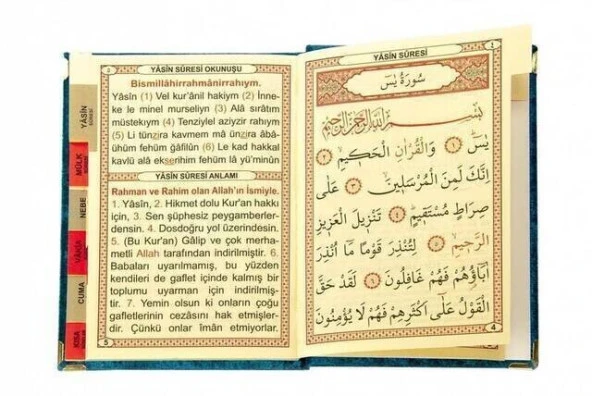 YÂSÎN SÛRESİ
سُورَةُ يٰسٓ
بِسْمِ اللّٰهِ الرَّحْمٰنِ الرَّحِيمِ
يٰسٓ ۝١ وَالْقُرْاٰنِ الْحَكِيمِ ۝٢
اِنَّكَ لَمِنَ الْمُرْسَلِينَ ۝٣ عَلٰى
صِرَاطٍ مُسْتَقِيمٍ ۝٤ تَنْزِيلَ الْعَزِيزِ
الرَّحِيمِ ۝٥ لِتُنْذِرَ قَوْمًا مَٓا اُنْذِرَ
اٰبَٓاؤُهُمْ فَهُمْ غَافِلُونَ ۝٦ لَقَدْ حَقَّ
الْقَوْلُ عَلٰٓى اَكْثَرِهِمْ فَهُمْ لَا يُؤْمِنُونَ
4
YÂSÎN SÛRESİ OKUNUŞU
Bismillâhirrahmânirrahıym.
Yâsîn (1) Vel kur'ânil hakiym (2) İnne-
ke le minel murseliyn (3) Alâ sırâtım
müstekıym (4) Tenziylel aziyzir rahıym
(5) Li tünzira kavmem mâ ünzira âbâ-
ühüm fehüm ğâfilûn (6) Le kad hakkal
kavlü alâ ekserihim fehüm lâ yü'minûn
YÂSÎN SÛRESİ ANLAMI
Rahman ve Rahim olan Allah'ın İsmiyle.
1. Yâsîn, 2. Hikmet dolu Kur'an hakkı
için, 3. Sen şüphesiz peygamberler-
densin. 4. Dosdoğru yol üzerindesin.
5. (Bu Kur'an) Gâlip ve çok merha-
metli Allah tarafından indirilmiştir. 6.
Babaları uyarılmamış, bu yüzden
kendileri de gaflet içinde kalmış bir
toplumu uyarman için indirilmiş-
tir. 7. Yemin olsun ki onların çoğu
gafletlerinin cezasını hak etmişler-
dir. Çünkü onlar îmân etmiyorlar.
5
YÂSÎN
SÛRESİ
MÜLK
NEBE
VÂKIA
CUMA
KISA